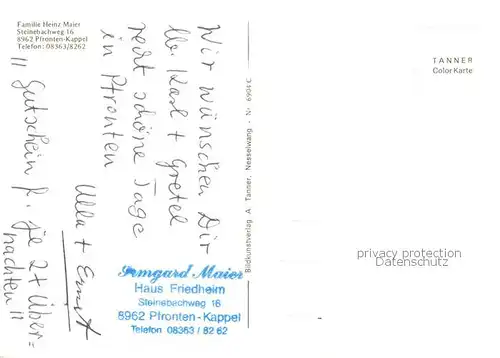 Familie Heinz Maier
Steinebachweg 16
8962 Pfronten-Kappel
Telefon: 08363/8262
Wir wünschen Dir
lb. Karl + Gretel
recht schöne Tage
in Pfronten
Ulla + Ernst
!! Gutschein f. je 2 + Über=
nachten !!
Irmgard Maier
Haus Friedheim
Steinebachweg 16
8962 Pfronten-Kappel
Telefon 08363 / 82 62
Bildkunstverlag A. Tanner, Nesselwang - Nr. 6904 C
TANNER
Color Karte
privacy protection
Datenschutz